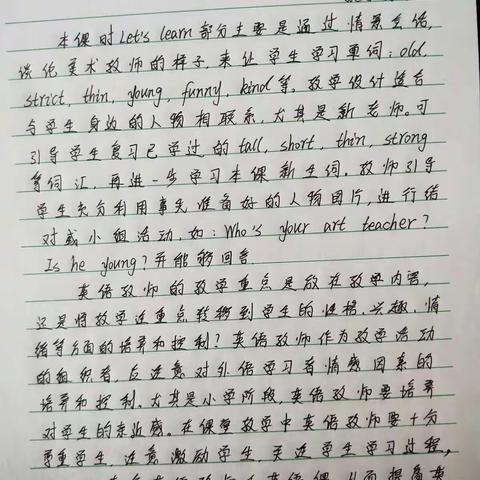 本课时Let's learn部分主要是通过情景会话,
谈论美术教师的样子,来让学生学习单词:old,
strict, thin, young, funny, kind等。教学设计适合
与学生身边的人物相联系,尤其是新老师。可
引导学生复习已学过的tall, short, thin, strong
等词汇,再进一步学习本课新生词。教师引导
学生充分利用事先准备好的人物图片,进行结
对或小组活动,如:Who's your art teacher?
Is he young?并能够回答
英语教师的教学重点是放在教学内容,
还是将教学注重点转移到学生的性格、兴趣、情
绪等方面的培养和控制?英语教师作为教学活动
的组织者,应注意对外语学习者情感因素的
培养和控制。尤其是小学阶段,英语教师要培养
对学生的亲近感。在课堂教学中英语教师要十分
尊重学生,注意激励学生,关注学生学习过程,